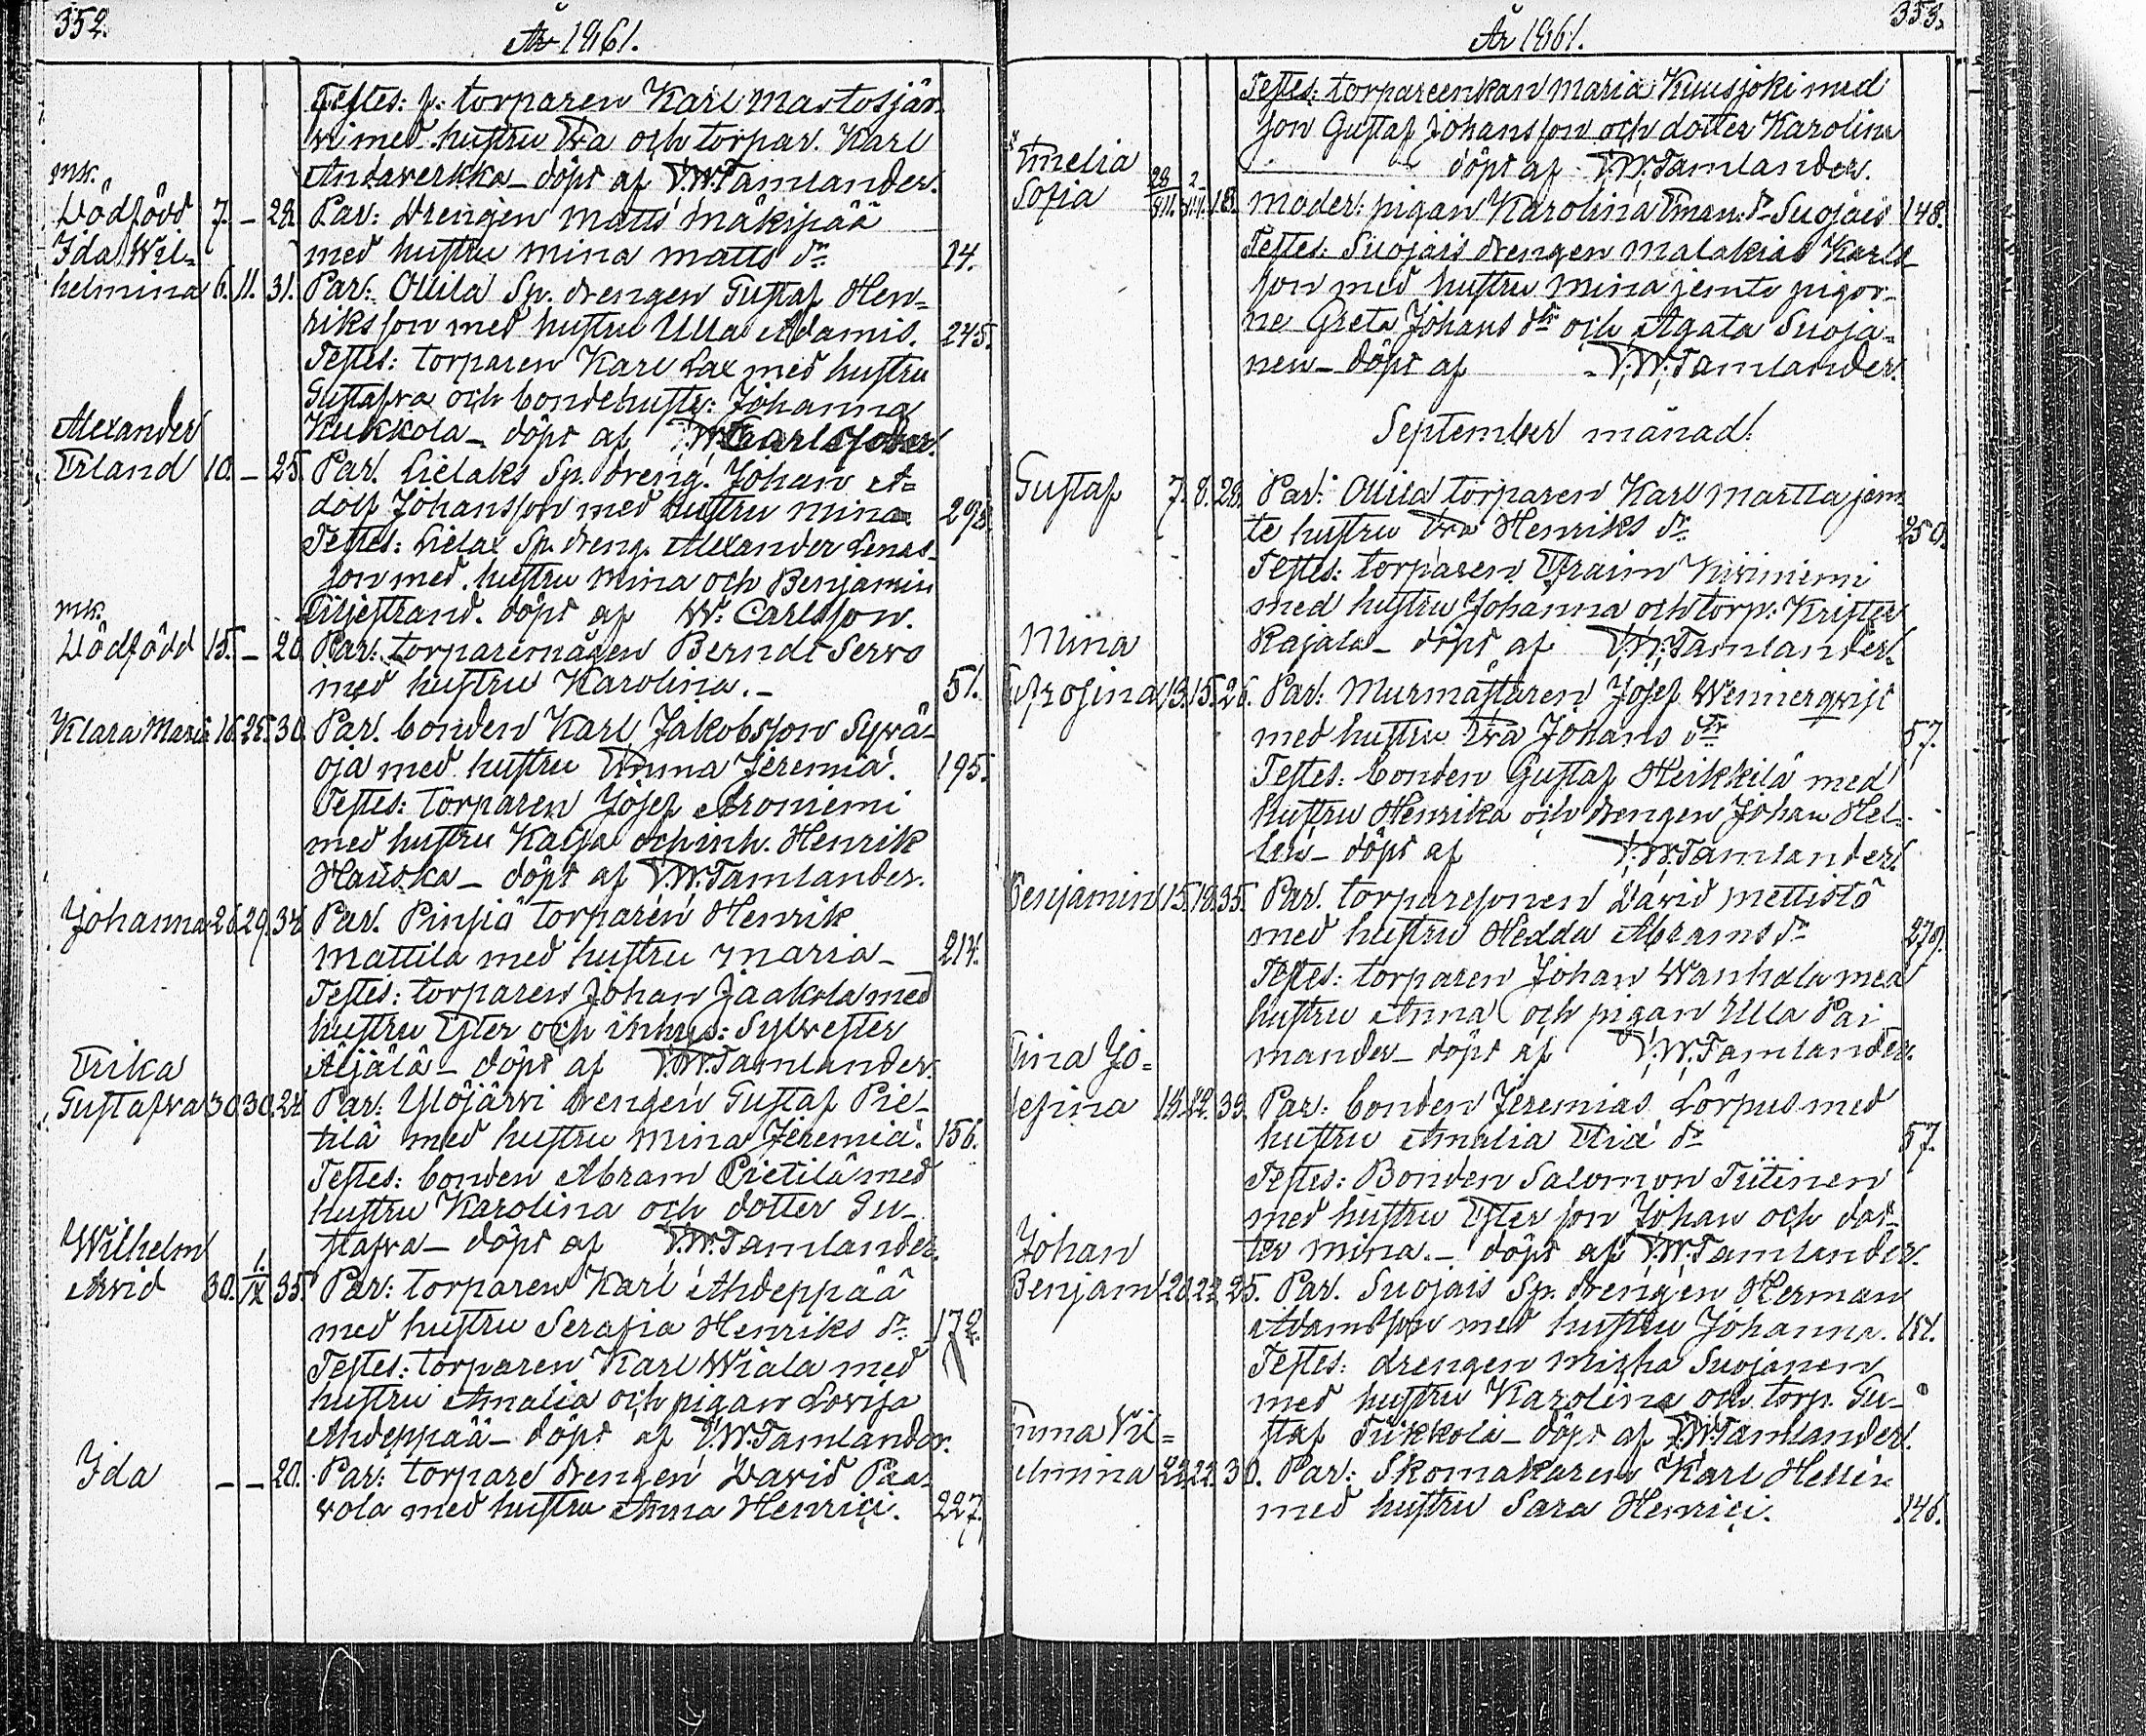 352.
År 1861.
Testes: f: torparen Karl Martosjär-
vi med hustru Eva och torpar. Karl
Antaverkka - döpt af V.W. Tamlander.
mk.
Dödfödd 7. - 28. Par: drengen Matts Mäkipää
med hustru Mina Matts dr 14.
Ida Wil-
helmina 6. 11. 31. Par: Ollila Sp. drengen Gustaf Hen-
riksson med hustru Ulla Adamis. 245.
Testes: torparen Karl Lax med hustru
Gustafva och bondehustr: Johanna
Kukkola - döpt af
Alexander
Erland 10. - 25. Par. Lielaks Sp. dreng. Johan A-
dolf Johansson med hustru Mina 298.
Testes: Lielax Sp. dreng. Alexander Lenas-
son med hustru Mina och Benjamin
Liljestrand. döpt af W. Carlsson.
mk.
Dödfödd 15. - 20. Par: torparemågen Berndt Servo
med hustru Karolina. - 51.
Klara Maria 16. 25. 30. Par. bonden Karl Jakobsson Syvä-
oja med hustru Emma Jeremiæ. 195.
Testes: torparen Josef Aroniemi
med hustru Kajsa och inh. Henrik
Hauska - döpt af V.W. Tamlander.
Johanna 26. 29. 34. Par. Pinsiö torparen Henrik
Mattila med hustru Maria - 214.
Testes: torparen Johan Jaakola med
hustru Ester och inhys: Sylvester
Äijälä - döpt af V.W. Tamlander.
Erika
Gustafva 30. 30. 24. Par: Ylöjärvi drengen Gustaf Pie-
tilä med hustru Mina Jeremiæ. 156.
Testes: bonden Abram Pietilä med
hustru Karolina och dotter Gu-
stafva - döpt af V.W. Tamlander.
Wilhelm
Arvid 30. 1./IX 35. Par: torparen Karl Ahdeppää
med hustru Serafia Henriks dr. 172.
Testes: torparen Karl Wiala med
hustru Amalia och pigan Lovisa
Ahdeppää - döpt af V.W. Tamlander.
Ida - - 20. Par: torpare drengen David Paa-
vola med hustru Anna Henrici. 227.
353.
År 1861.
Testes: torpareenkan Maria Kuusjoki med
son Gustaf Johansson och dotter Karolina
döpt af V.W. Tamlander.
Emelia
Sofia 18. Moder: pigan Karolina Eman: dr Suojais 148.
Testes: Suojais drengen Malakias Karls-
son med hustru Mina jemte pigor-
ne Greta Johans dtr och Agata Suoja-
nen - döpt af V.W. Tamlander.
September månad:
Gustaf 7. 8. 28. Par: Ollila torparen Karl Martla jem-
te hustru Eva Henriks dr 250.
Testes: torparen Efraim Kiviniemi
med hustru Johanna och torp: Krister
Rajala - döpt af V.W. Tamlander.
Mina
Eufrosina 13. 15. 26. Par: Murmästaren Josef Wennerqvist
med hustru Eva Johans dtr 57.
Testes: bonden Gustaf Heikkilä med
hustru Henrika och drengen Johan Hel-
lén - döpt af V.W. Tamlander.
Benjamin 15. 18. 35. Par. torparesonen David Mettistö
med hustru Hedda Abrams dr 279.
Testes: torparen Johan Wanhala med
hustru Anna och pigan Ulla Pai
mander - döpt af V.W. Tamlander.
Tina Jo-
sefina 19. 22. 39. Par: bonden Jeremias Lörpus med
hustru Amalia Eriæ dr 57.
Testes: Bonden Salomon Tiitinen
med hustru Ester son Johan och dot-
ter Mina. - döpt af V.W. Tamlander.
Johan
Benjam 20. 22. 25. Par. Suojais Sp. drengen Herman
Adamsson med hustru Johanna. 151.
Testes: drengen Miska Suojanen
med hustru Karolina och torp. Gu-
staf Tiikkola - döpt af V.W. Tamlander.
Emma Vil-
elmina 22. 22. 30. Par: Skomakaren Karl Hellén
med hustru Sara Henrici. 146.